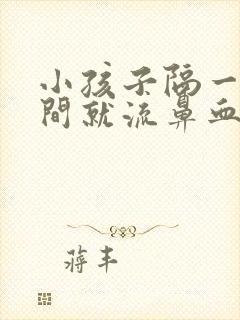 小孩子隔一
間就流鼻血
蒋丰